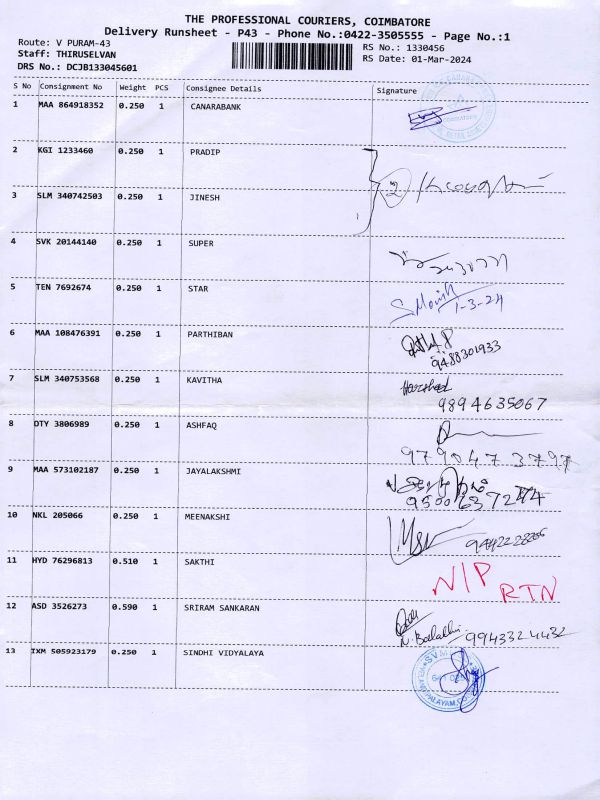 THE PROFESSIONAL COURIERS, COIMBATORE
Delivery Runsheet - P43 - Phone No.:0422-3505555 - Page No.:1
Route: V PURAM-43
RS No.: 1330456
Staff: THIRUSELVAN
RS Date: 01-Mar-2024
DRS No.: DCJB133045601
S No Consignment No Weight PCS Consignee Details Signature
1 MAA 864918352 0.250 1 CANARABANK
2 KGI 1233460 0.250 1 PRADIP
2
3 SLM 340742503 0.250 1 JINESH
4 SVK 20144140 0.250 1 SUPER
5 TEN 7692674 0.250 1 STAR
1-3-24
6 MAA 108476391 0.250 1 PARTHIBAN
9488301933
7 SLM 340753568 0.250 1 KAVITHA
Harshad
9894635067
8 DTY 3806989 0.250 1 ASHFAQ
9790473797
9 MAA 573102187 0.250 1 JAYALAKSHMI
10 NKL 205066 0.250 1 MEENAKSHI
11 HYD 76296813 0.510 1 SAKTHI
N/P
RTN
12 ASD 3526273 0.590 1 SRIRAM SANKARAN
9943324432
13 IXM 505923179 0.250 1 SINDHI VIDYALAYA